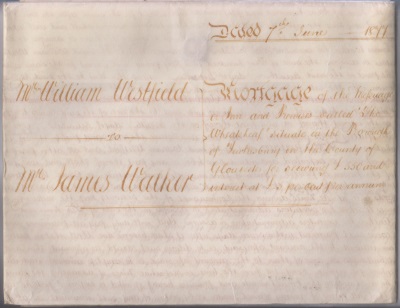 Dated 7th June 1877
Mr William Westfield
to
Mr James Walker
Mortgage of the
Inn and Premises called "The
Wheatsheaf" situate in the Borough
of Tewkesbury in the County of
Gloucr to secure £ and
interest at per cent per annum